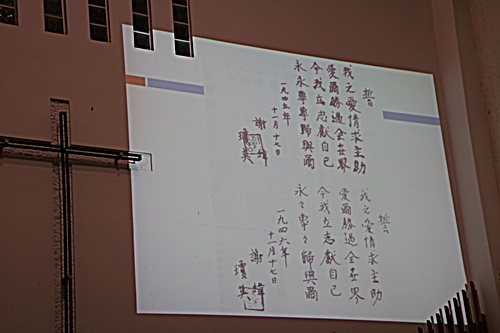 誓
我之愛情求主助
愛爾勝過全世界
今我立志獻自己
永永專專歸與爾
一九四五年
十一月十七日
謝緯
瓊英
誓
我之愛情求主助
愛爾勝過全世界
今我立志獻自己
永々專々歸與爾
一九四六年
十一月十七日
謝緯
瓊英